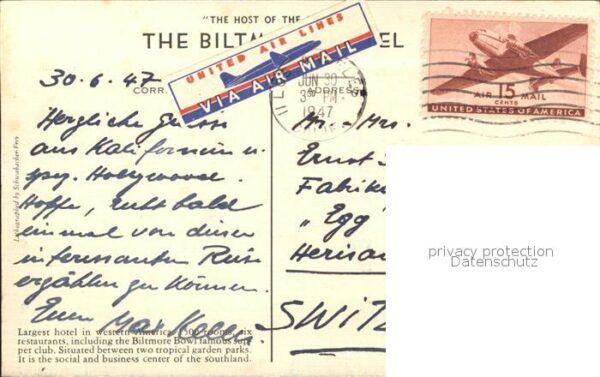 "THE HOST OF THE
THE BILTM EL
UNITED AIR LINES
VIA AIR MAIL
30.6.47
CORR.
ADDRESS
JUN 30
3 30 PM
1947
15
AIR MAIL
CENTS
UNITED STATES OF AMERICA
Herzliche Grüsse
aus Kalifornien u.
spez. Hollywood.
Hoffe, Euch bald
einmal von dieser
interessanten Reise
erzählen zu können.
Euer Max
Mr. + Mrs.
Ernst
Fabrik
"Egg
Herisau
SWITZ
Lithographed by Schwabacher-Frey
Largest hotel in western America, 1500 rooms, six
restaurants, including the Biltmore Bowl famous sup-
per club. Situated between two tropical garden parks.
It is the social and business center of the southland.
privacy protection
Datenschutz